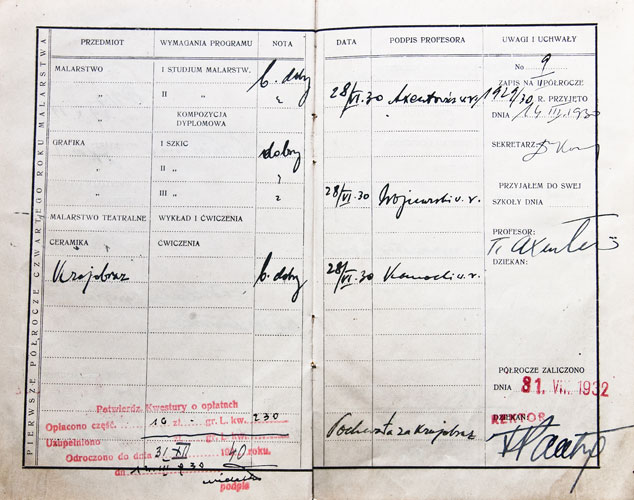 PIERWSZE PÓŁROCZE CZWARTEGO ROKU MALARSTWA
PRZEDMIOT WYMAGANIA PROGRAMU NOTA DATA PODPIS PROFESORA UWAGI I UCHWAŁY
MALARSTWO I STUDJUM MALARSTW. b. dobry
" II "
KOMPOZYCJA
DYPLOMOWA
GRAFIKA I SZKIC dobry
" II "
" III "
MALARSTWO TEATRALNE WYKŁAD I ĆWICZENIA
CERAMIKA ĆWICZENIA
Krajobraz b. dobry
28/VI.30
28/VI.30 Wojnarski w. r.
28/VI.30 Kamocki w. r.
No 9
ZAPIS NA II PÓŁROCZE
1929/30 R. PRZYJĘTO
DNIA 14 III 1930
SEKRETARZ:
PRZYJĄŁEM DO SWEJ
SZKOŁY DNIA
PROFESOR:
T. Axentowicz
DZIEKAN:
PÓŁROCZE ZALICZONO
DNIA 31. VII. 1932
REKTOR
DZIEKAN:
Pochwała za Krajobraz
Potwierdz. Kwestury o opłatach
Opłacono część. 10 zł. gr. L. kw. 230
Uzupełniono zł. gr. L. kw.
Odroczono do dnia 31 XII 1940 roku.
dn. III 1930
podpis